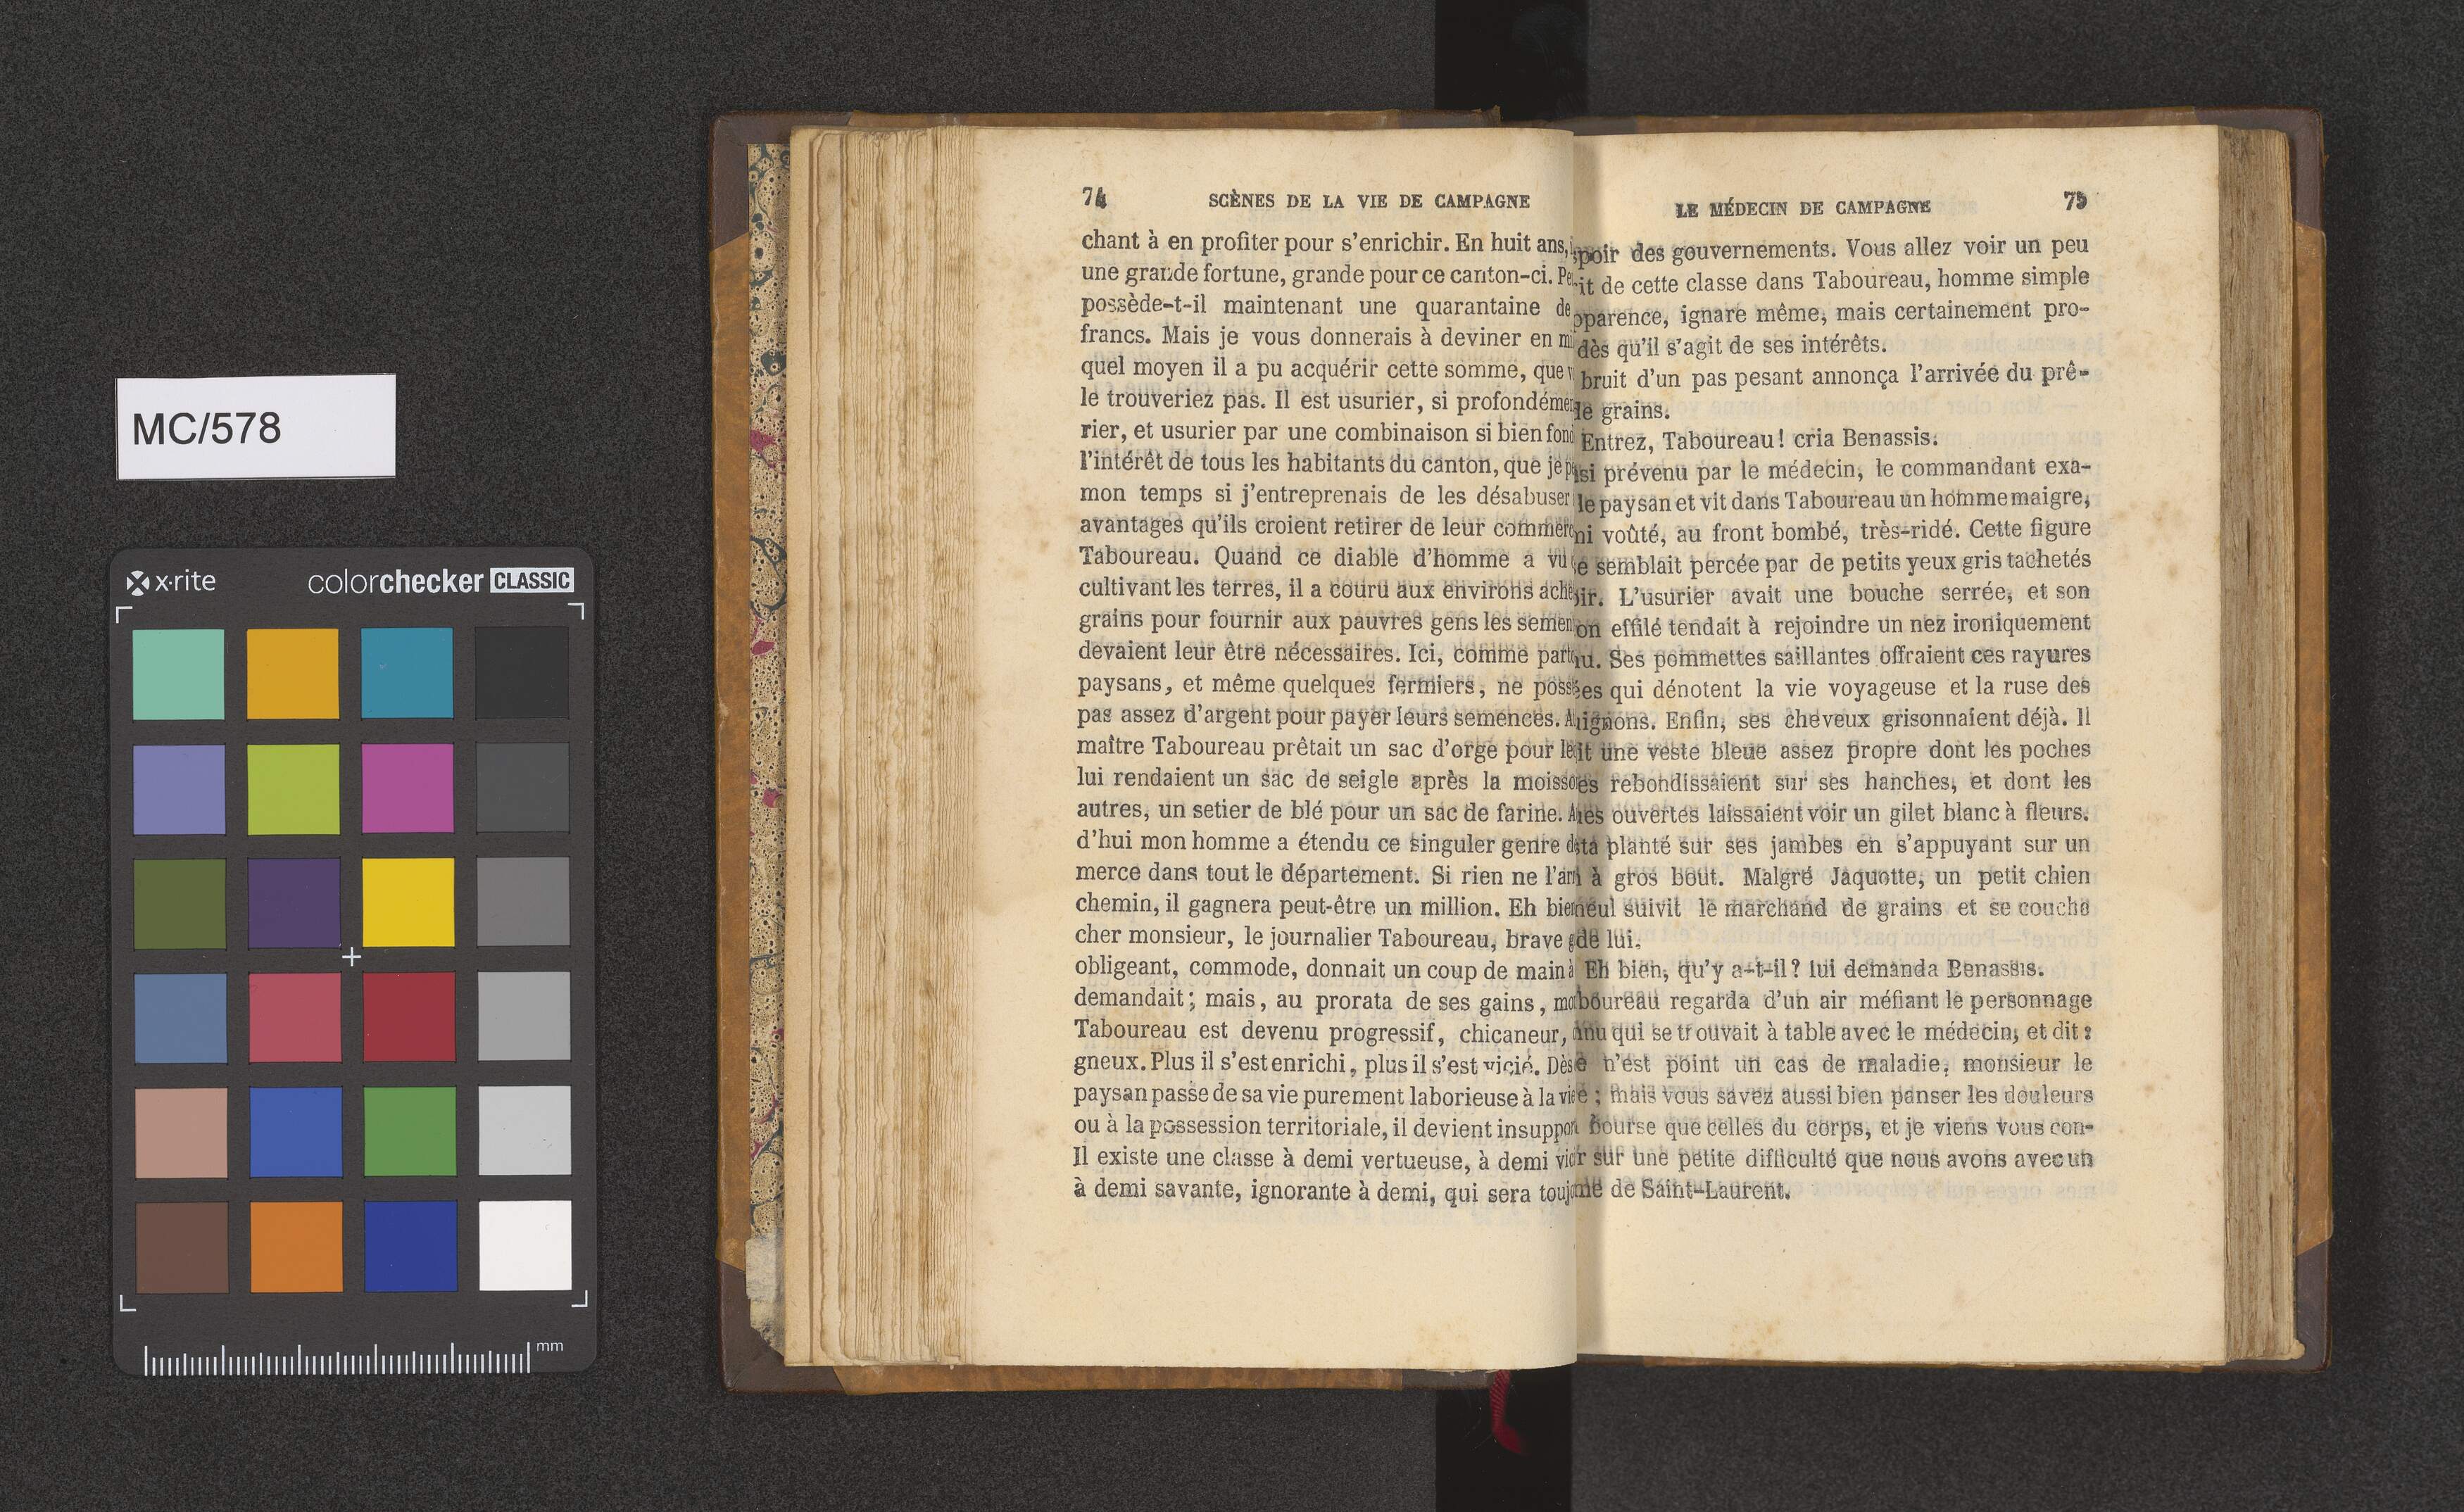 MC/578
x-rite
colorchecker CLASSIC
mm
74
SCÈNES DE LA VIE DE CAMPAGNE
chant à en profiter pour s'enrichir. En huit ans,
une grande fortune, grande pour ce canton-ci.
possède-t-il maintenant une quarantaine de
francs. Mais je vous donnerais à deviner en
quel moyen il a pu acquérir cette somme, que
le trouveriez pas. Il est usurier, si
rier, et usurier par une combinaison si bien
l'intérêt de tous les habitants du canton, que je
mon temps si j'entreprenais de les désabuser
avantages qu'ils croient retirer de leur
Taboureau. Quand ce diable d'homme a vu
cultivant les terres, il a couru aux environs
grains pour fournir aux pauvres gens les
devaient leur être nécessaires. Ici, comme
paysans, et même quelques fermiers, ne
pas assez d'argent pour payer leurs semences.
maître Taboureau prêtait un sac d'orge pour
lui rendaient un sac de seigle après la
autres, un setier de blé pour un sac de farine.
d'hui mon homme a étendu ce singulier genre
merce dans tout le département. Si rien ne
chemin, il gagnera peut-être un million. Eh
cher monsieur, le journalier Taboureau, brave
obligeant, commode, donnait un coup de main à
demandait ; mais, au prorata de ses gains,
Taboureau est devenu progressif, chicaneur,
gneux. Plus il s'est enrichi, plus il s'est vicié. Dès
paysan passe de sa vie purement laborieuse à la
ou à la possession territoriale, il devient
Il existe une classe à demi vertueuse, à demi
à demi savante, ignorante à demi, qui sera
LE MÉDECIN DE CAMPAGNE
75
des gouvernements. Vous allez voir un peu
de cette classe dans Taboureau, homme simple
ignare même, mais certainement pro-
dès qu'il s'agit de ses intérêts.
bruit d'un pas pesant annonça l'arrivée du prê-
grains.
Entrez, Taboureau ! cria Benassis.
prévenu par le médecin, le commandant exa-
le paysan et vit dans Taboureau un homme maigre,
voûté, au front bombé, très-ridé. Cette figure
semblait percée par de petits yeux gris tachetés
L'usurier avait une bouche serrée, et son
effilé tendait à rejoindre un nez ironiquement
Ses pommettes saillantes offraient ces rayures
qui dénotent la vie voyageuse et la ruse des
Enfin, ses cheveux grisonnaient déjà. Il
une veste bleue assez propre dont les poches
rebondissaient sur ses hanches, et dont les
ouvertes laissaient voir un gilet blanc à fleurs.
planté sur ses jambes en s'appuyant sur un
à gros bout. Malgré Jaquotte, un petit chien
suivit le marchand de grains et se coucha
de lui.
Eh bien, qu'y a-t-il ? lui demanda Benassis.
regarda d'un air méfiant le personnage
qui se trouvait à table avec le médecin, et dit :
n'est point un cas de maladie, monsieur le
; mais vous savez aussi bien panser les douleurs
bourse que celles du corps, et je viens vous con-
sur une petite difficulté que nous avons avec un
de Saint-Laurent.